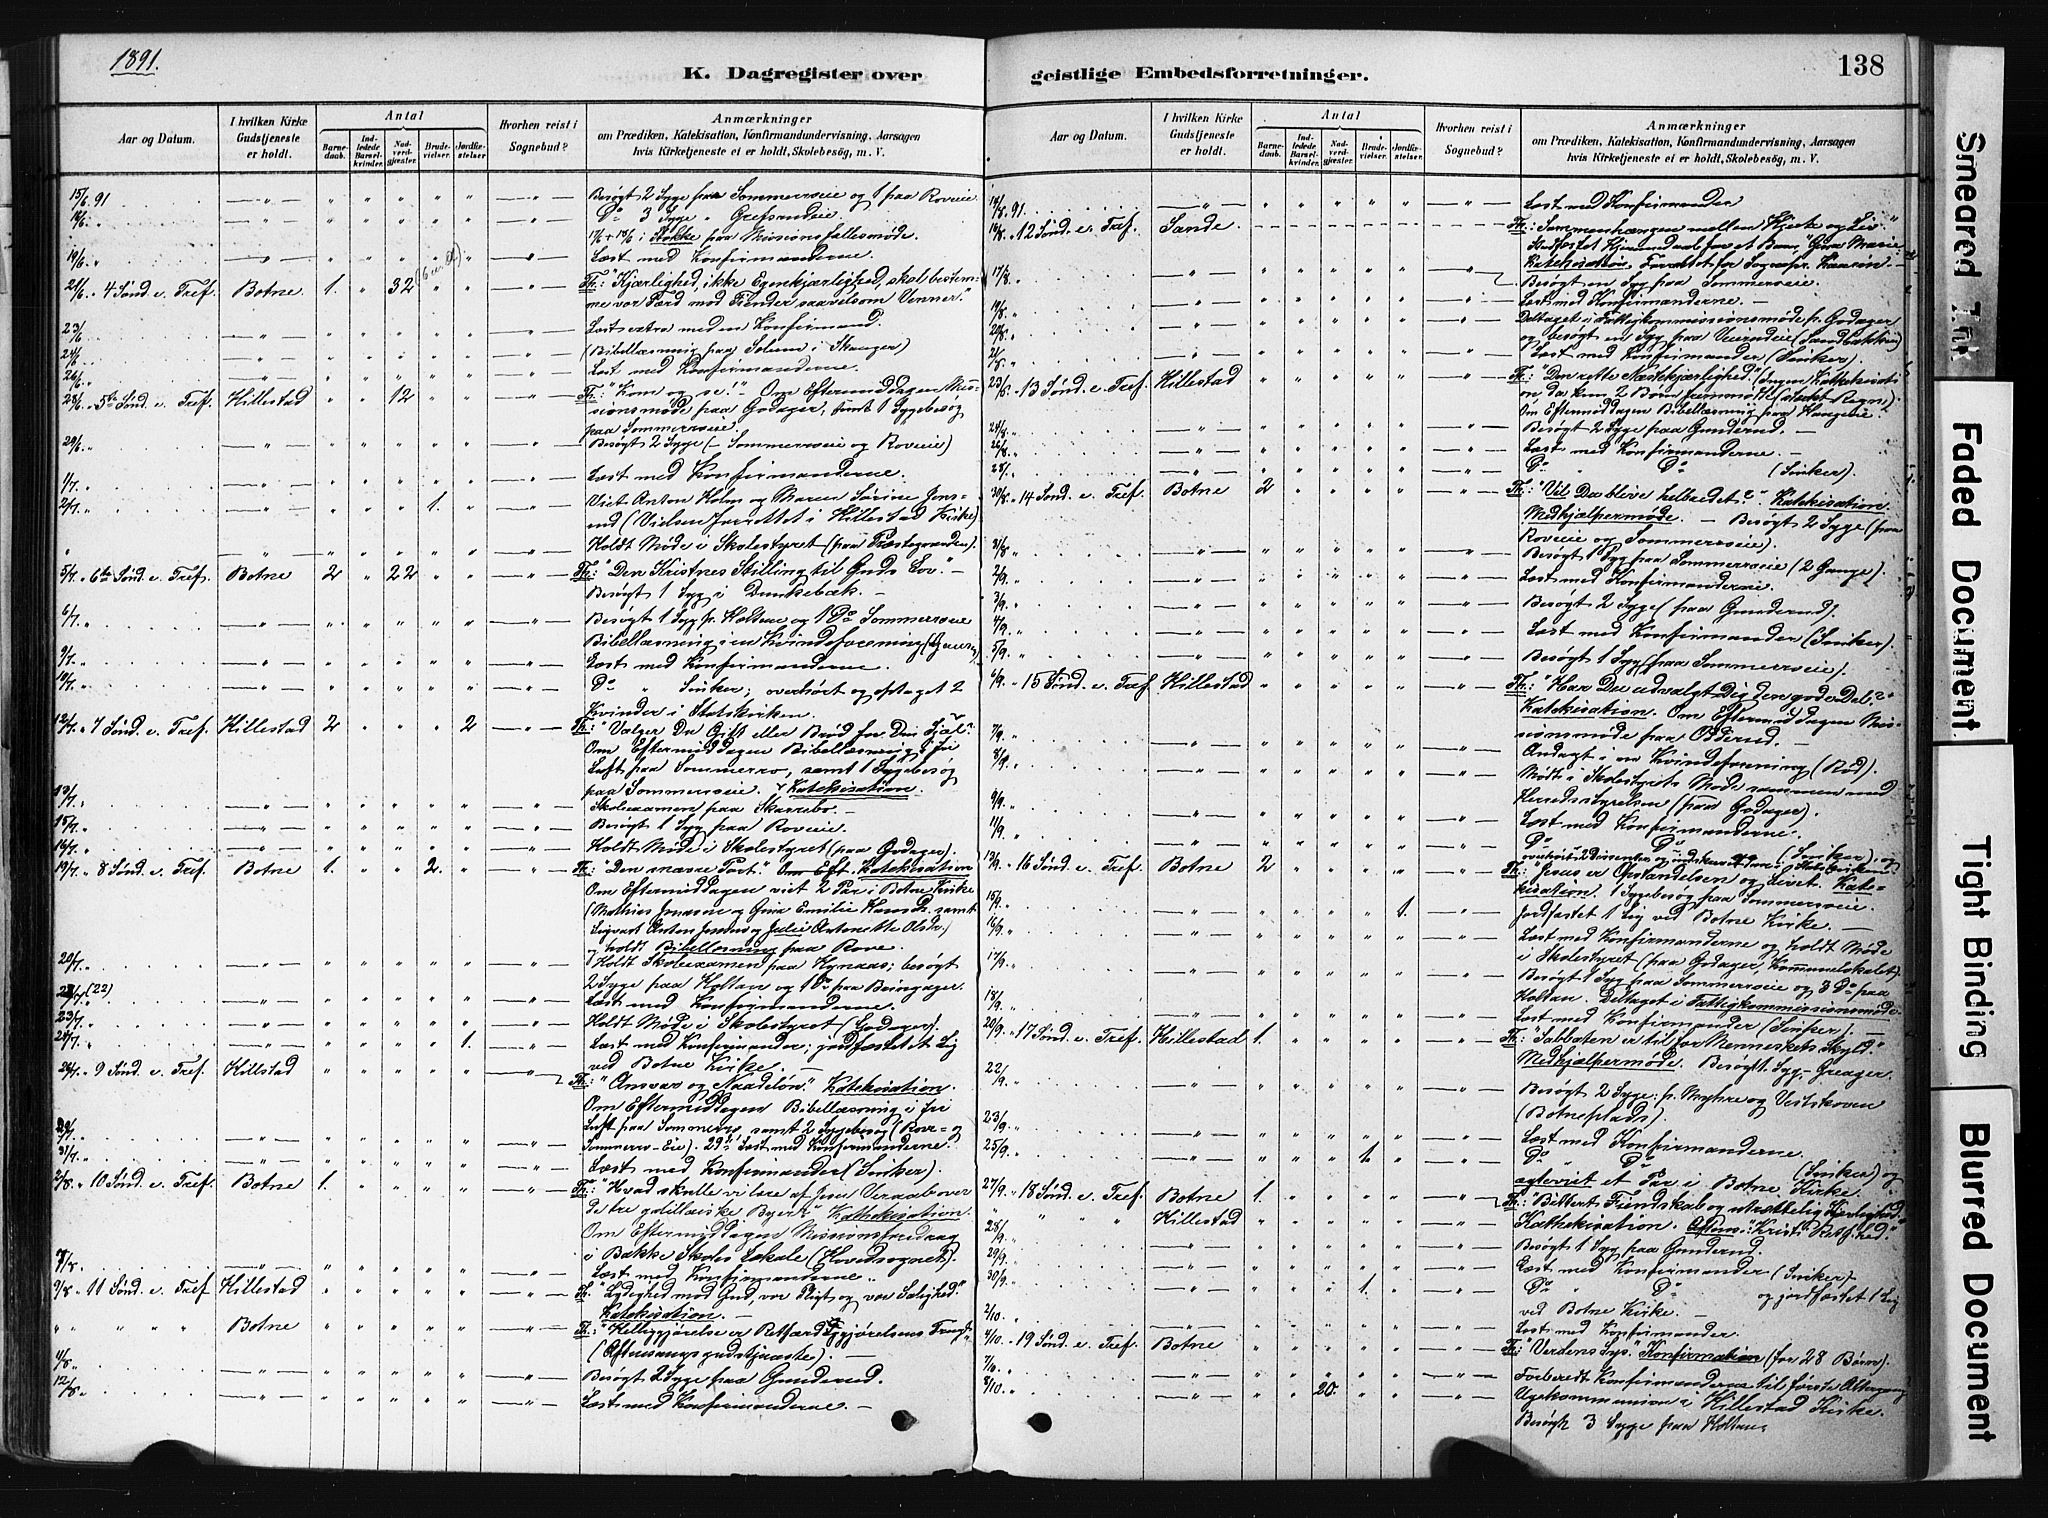 1891.
K. Dagregister over
geistlige Embedsforretninger.
138
Aar og Datum.
I hvilken Kirke Gudstjeneste er holdt.
Antal
Barnedaab.
Indledede Barselkvinder.
Nadverdgjæster.
Brudevielser.
Jordfæstelser.
Hvorhen reist i Sognebud?
Anmærkninger
om Prædiken, Katekisation, Konfirmandundervisning, Aarsagen
hvis Kirketjeneste ei er holdt, Skolebesøg, m. V.
15/6 91 Besøgt 2 Syge paa Sommerroeie og 1 paa Roveie
16/6 Do 3 Syge " Grefsrudeie
17/6 + 18/6 i Stokke paa Missionsfællesmøde.
19/6 Læst med Konfirmanderne.
21/6 " 4 Sønd. e. Tref. Botne 1. 32 Th: "Kjærlighed, ikke Egenkjærlighed, skal bestem-
me vor Færd mod Fiender saavelsom Venner."
23/6 Læst extra med en Konfirmand.
24/6 (Bibellæsning paa Solum i Skouger)
26/6 Læst med Konfirmanderne.
28/6 " 5te Sønd. e. Tref. Hillestad 12 Th: "Kom og se!" - Om Eftermiddagen Mis-
sionsmøde paa Godager, samt 1 Sygebesøg
paa Sommerroeie.
29/6 Besøgt 2 Syge (- Sommerroeie og Roveie)
1/7 Læst med Konfirmanderne.
2/7 1. Viet Anton Holm og Maren Sørine Jens-
rud (Vielsen forrettet i Hillestad Kirke)
" Holdt Møde i Skolestyret (paa Præstegaarden).
5/7 " 6te Sønd. e. Tref. Botne 2 22 Th: "Den Kristnes Stilling til Guds Lov." -
Besøgt 1 Syg i Dunkebæk. -
6/7 Besøgt 1 Syg p. Holtan og 1 Do Sommerroeie
Bibellæsning i en Kvindeforening
9/7 Læst med Konfirmanderne.
10/7 Do " Sinker; overhørt og optaget 2
Kvinder i Statskirken.
12/7 " 7 Sønd. e. Tref. Hillestad 2 2 Th: "Vælger Du Gift eller Brød for Din Sjæl".
Om Eftermiddagen Bibellæsning i fri
Luft paa Sommerro, samt 1 Sygebesøg
paa Sommerroeie. Katekisation.
13/7 Skoleexamen paa Skarrebo. -
15/7 Besøgt 1 Syg paa Roveie.
16/7 Holdt Møde i Skolestyret (paa Godager).
19/7 " 8 Sønd. e. Tref. Botne 1. 2. Th: "Den snævre Port". Om Eft. Katekisation
Om Eftermiddagen viet 2 Par i Botne Kirke
holdt Bibellæsning paa Rove.
20/7 Holdt Skoleexamen paa Kynaas; besøgt
2 Syge paa Holtan og 1 Do paa Bringager.
(22) Læst med Konfirmanderne.
23/7 Holdt Møde i Skolestyret (Godager).
24/7 1. Læst med Konfirmander; jordfæstet et Lig
ved Botne Kirke. -
26/7 " 9 Sønd. e. Tref. Hillestad Th: "Ansvar og Naadeløn." Katekisation.
Om Eftermiddagen Bibellæsning i fri
Luft paa Sommerro, samt 2 Sygebesøg (Rove- og
Sommerro-Eie). 29/7: Læst med Konfirmanderne.
31/7 Læst med Konfirmander (Sinker).
2/8 " 10 Sønd. e. Tref. Botne 1. Th: "Hvad skulle vi lære af Jesu Veraab over
de tre galilæiske Byer" Kathekisation.
Om Eftermiddagen Missionsforedrag
i Bakke Skoles Lokale (Hovedsognet).
7/8 Læst med Konfirmanderne.
9/8 " 11 Sønd. e. Tref. Hillestad Th: "Lydighed mod Gud, vor Pligt og vor Salighed."
Katekisation. -
" " " " Botne Th: "Helliggjørelse er Retfærdiggjørelsens Frugt"
(Aftensangsgudstjeneste). -
Besøgt 2 Syge paa Gunderud.
12/8 Læst med Konfirmanderne. -
14/8 91. Læst med Konfirmander
16/8 " 12 Sønd. e. Tref. Sande Th: "Sammenhængen mellem Hjerte og Liv"
Stadfæstet Hjemmedaab for et Barn,
Katekisation. Forrettet for Sognepr.
17/8 Besøgt en Syg paa Sommerroeie.
19/8 Læst med Konfirmanderne. -
20/8 Deltaget i Fattigkommissionsmøde p. Godager
og besøgt en Syg paa
21/8 Læst med Konfirmander (Sinker).
23/8 " 13 Sønd. e. Tref. Hillestad Th: "Den rette Næstekjærlighed." (Ingen Katekisati-
on da kun 2 Børn fremmødte
Om Eftermiddagen Bibellæsning paa
24/8 Besøgt 2 Syge paa Gunderud. -
26/8 Læst med Konfirmanderne. -
28/8 Do " Do (Sinker).
30/8 " 14 Sønd. e. Tref. Botne 2 Th: "Vil Du blive helbredet?" Katekisation.
Medhjælpermøde. - Besøgt 2 Syge (paa
Roveie og Sommerroeie).
31/8 Besøgt 1 Syg paa Sommerroeie (2 Gange).
2/9 Læst med Konfirmanderne.
3/9 Besøgt 2 Syge (paa Gunderud).
4/9 Læst med Konfirmander (Sinker).
5/9 Besøgt 1 Syg (paa Sommerroeie).
6/9 " 15 Sønd. e. Tref. Hillestad Th: "Har Du udvalgt Dig den gode Del?"
Katekisation. Om Eftermiddagen Mis-
sionsmøde paa Odderud. -
7/9 Andagt i en Kvindeforening (Rød).
8/9 Mødt i Skolestyrets Møde sammen med
Herredsstyrelsen (paa Godager).
9/9 Læst med Konfirmanderne.
11/9 Do " Do (Sinker), og
overhørt 2 Dissentere og indskrevet dem i Statskirken.
13/9 " 16 Sønd. e. Tref. Botne 2 Th: "Jesus er Opstandelsen og Livet. Kate-
kisation. 1 Sygebesøg paa Sommerroeie.
15/9 1. Jordfæstet 1 Lig ved Botne Kirke. -
16/9 Læst med Konfirmanderne og holdt Møde
i Skolestyret (paa Godager, Kommunelokalet).
17/9 Besøgt 1 Syg paa Sommerroeie og 3 Do paa
Holtan. Deltaget i Fattigkommissionsmøde.
18/9 Læst med Konfirmander (Sinker). -
20/9 " 17 Sønd. e. Tref. Hillestad 1. Th: "Sabbaten er til for Menneskets Skyld."
Medhjælpermøde. Besøgt 1 Syg, - Greager.
22/9 Besøgt 2 Syge: p. Myhre og Vestskoven
(Botneplads).
23/9 Læst med Konfirmanderne.
25/9 1. Do " Do (Sinker) og
egteviet et Par i Botne Kirke.
27/9 " 18 Sønd. e. Tref. Botne 1. Th: "Bittert Fiendskab og utrættelig Kjærlighed."
" " " Hillestad Kathekisation. Aftens: "Kristi Retfd.hed."
28/9 Besøgt 1 Syg paa Gunderud.
29/9 Læst med Konfirmander (Sinker)
30/9 1. Do " Do og jordfæstet 1 Lig
ved Botne Kirke. -
2/10 Læst med Konfirmander.
4/10 " 19 Sønd. e. Tref. Botne Th: "Verdens Lys." Konfirmation (for 28 Børn).
7/10 Forberedt Konfirmanderne til første Altergang
8/10 20. Ugekommunion i Hillestad Kirke.
Besøgt 3 Syge paa Holtan.
Smeared Ink
Faded Document
Tight Binding
Blurred Document